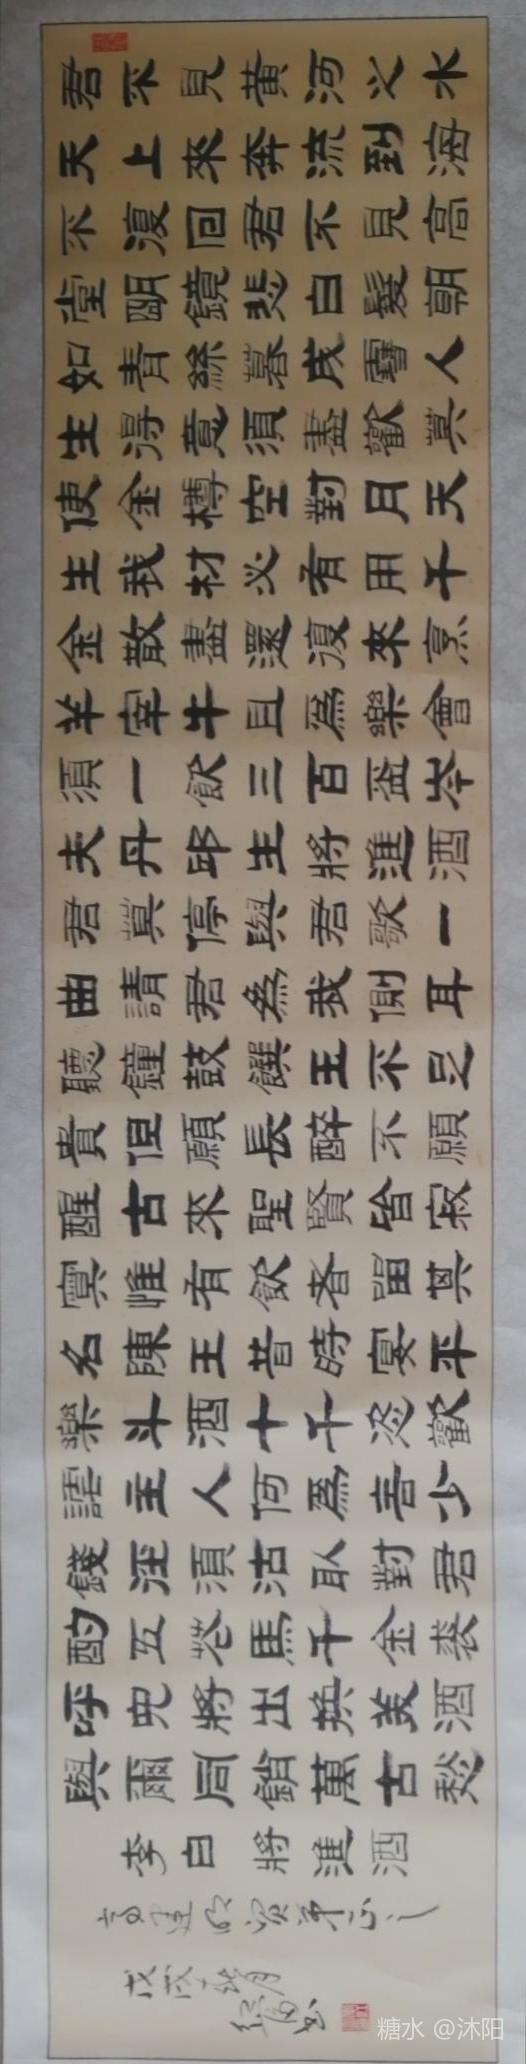 君不見黃河之水
天上來奔流到海
不復回君不見高
堂明鏡悲白髮朝
如青絲暮成雪人
生得意須盡歡莫
使金樽空對月天
生我材必有用千
金散盡還復來烹
羊宰牛且為樂會
須一飲三百盃岑
夫丹邱生將進酒
君莫停與君歌一
曲請君為我側耳
聽鐘鼓饌玉不足
貴但願長醉不願
醒古來聖賢皆寂
寞惟有飲者留其
名陳王昔時宴平
樂斗酒十千恣歡
謔主人何為言少
錢徑須沽取對君
酌五花馬千金裘
呼兒將出換美酒
與爾同銷萬古愁
李白將進酒
高建明賢弟正之
戊戌月
書
糖水 @沐阳